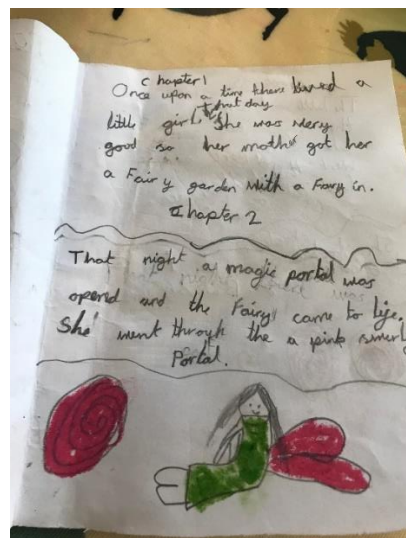 Chapter 1
Once upon a time there lived a
little girl. That day She was very
good so her mother got her
a Fairy garden with a Fairy in.
Chapter 2
That night a magic portal was
opend and the Fairy came to life.
She went through the a pink swirly
Portal.